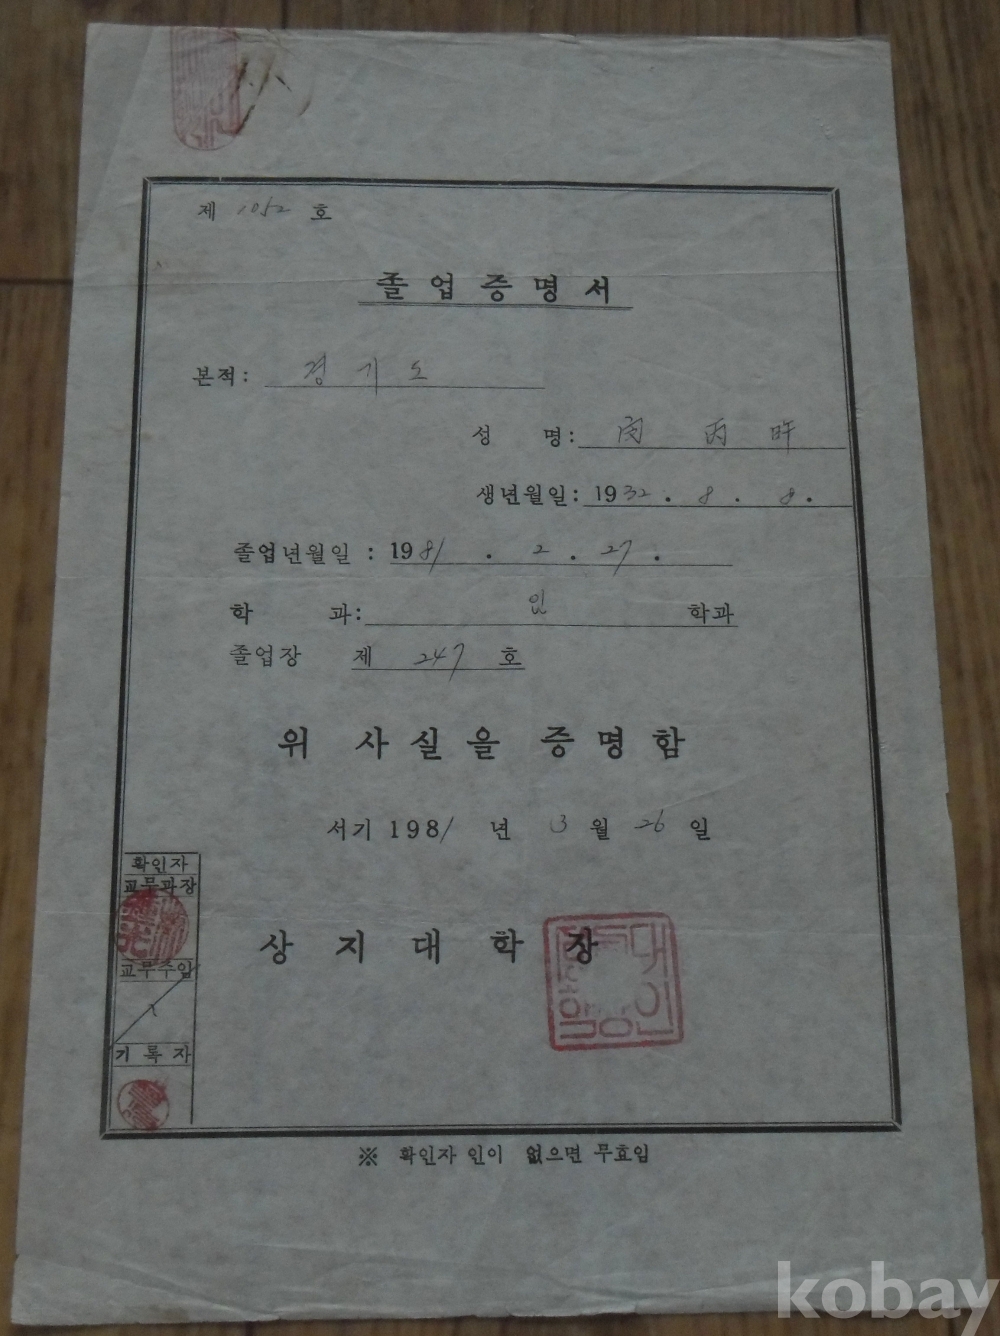 제 1052 호
졸업증명서
본적: 경기도
성 명: 閔 丙
생년월일: 1932. 8. 8.
졸업년월일 : 1981. 2. 27.
학 과: 학과
졸업장 제 247 호
위 사실을 증명함
서기 1981 년 3 월 26 일
상지대학장
확인자
교무과장
교무주임
기록자
※ 확인자 인이 없으면 무효임
kobay